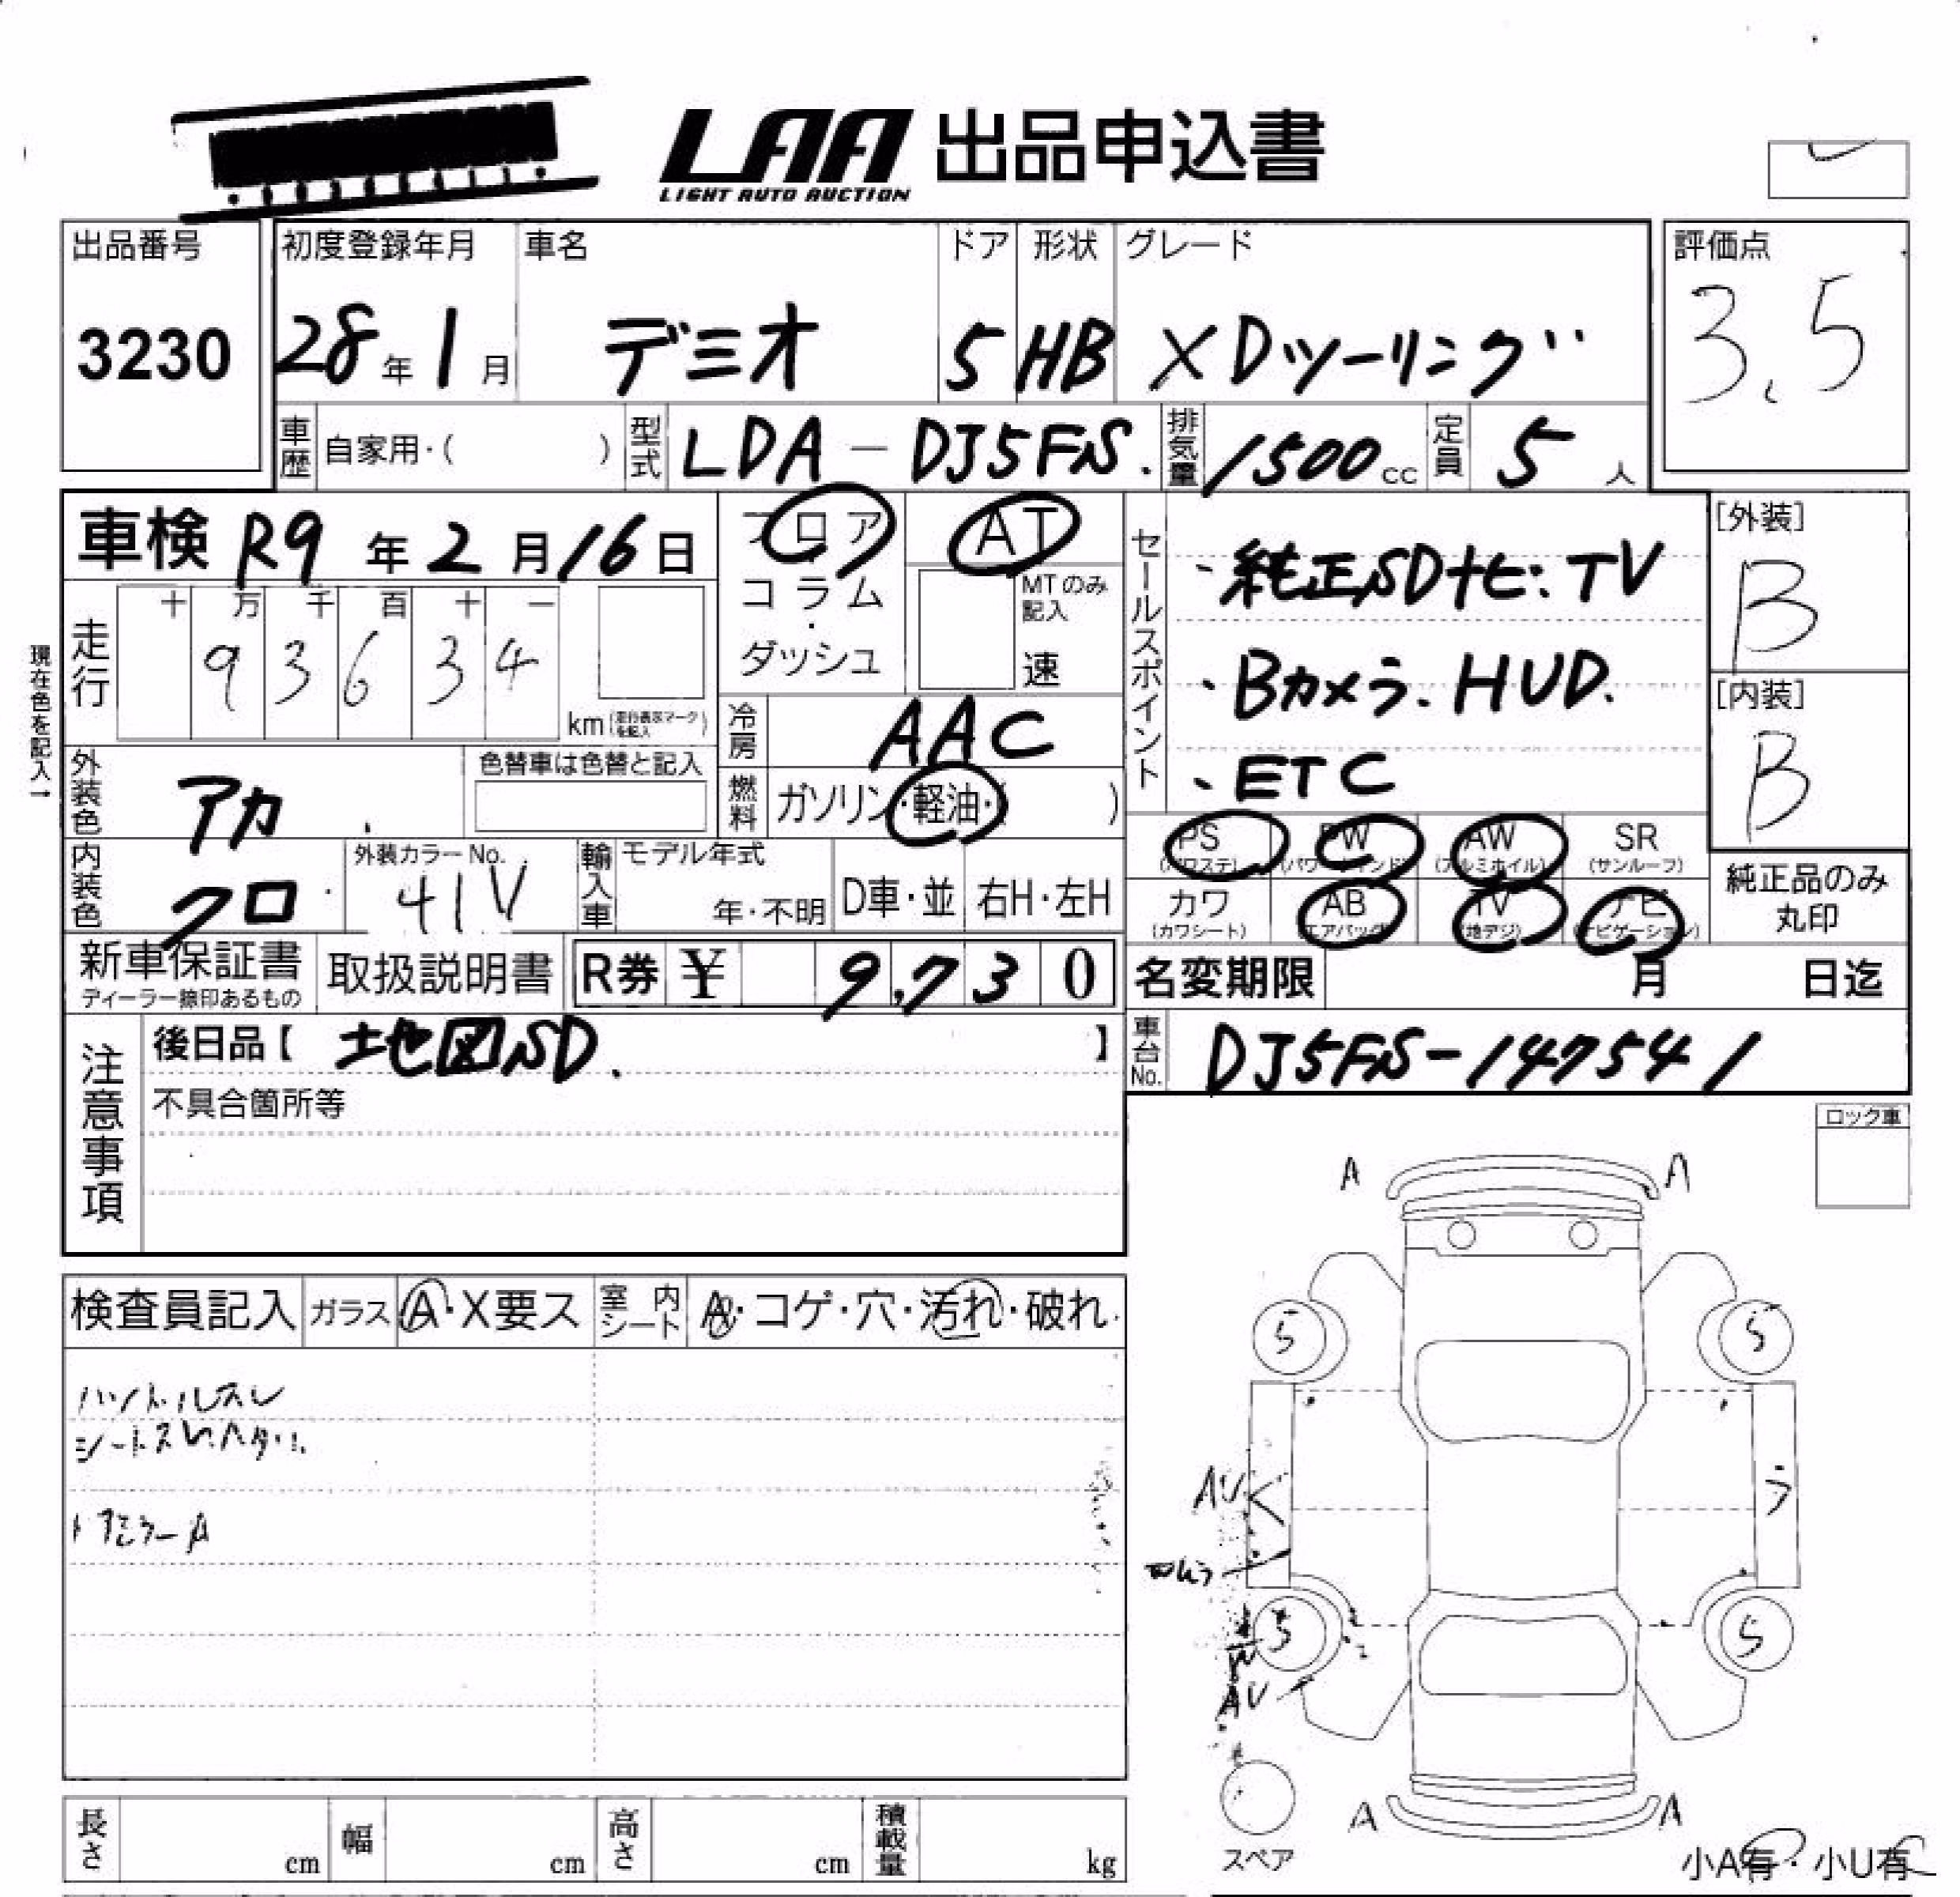 LAA 出品申込書
LIGHT AUTO AUCTION
出品番号 初度登録年月 車名 ドア 形状 グレード 評価点
3230 28年1月 デミオ 5 HB XDツーリング 3.5
車歴 自家用・( ) 型式 LDA-DJ5FS. 排気量 1500cc 定員 5人
車検 R9年2月16日 フロア AT [外装]
コラム・ MTのみ記入 B
ダッシュ 速
現在色を記入→
走行 十万千百十一
93634
km(走行表示マークを記入)
セールスポイント
・純正SDナビ:TV
・Bカメラ.HUD.
・ETC
[内装]
B
冷房 AAC
外装色 アカ. 色替車は色替と記入
燃料 ガソリン・軽油・( )
PS PW AW SR
(パワステ) (パワーウィンド) (アルミホイル) (サンルーフ)
内装色 クロ. 外装カラーNo. 41V 輸入車 モデル年式 年・不明 D車・並 右H・左H
カワ AB TV ナビ
(カワシート) (エアバッグ) (地デジ) (ナビゲーション)
純正品のみ
丸印
新車保証書 取扱説明書 R券 ¥ 9,730 名変期限 月 日迄
ディーラー捺印あるもの
注意事項 後日品【 地図SD. 】 車台No. DJ5FS-147541
不具合箇所等
ロック車
A A
検査員記入 ガラス A・X要ス 室内シート A・コゲ・穴・汚れ・破れ
5 5
ハンドルスレ
シートスレ.ヘタリ.
ドアミラーA
AU
5 5
AU
A A
スペア
長さ cm 幅 cm 高さ cm 積載量 kg
小A有・小U有